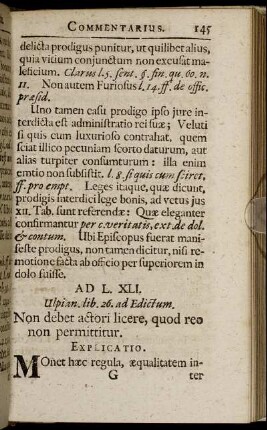 COMMENTARIUS. 145
delicta prodigus punitur, ut quilibet alius,
quia vitium conjunctum non excusat ma-
leficium. Clarus l. 5. sent. §. fin. qu. 60. n.
11. Non autem Furiosus l. 14. ff. de offic.
præsid.
Uno tamen casu prodigo ipso jure in-
terdicta est administratio rei suæ; Veluti
si quis cum luxurioso contrahat, quem
sciat illico pecuniam scorto daturum, aut
alias turpiter consumturum: illa enim
emtio non subsistit. l. 8. si quis cum sciret,
ff. pro empt. Leges itaque, quæ dicunt,
prodigis interdici lege bonis, ad vetus jus
xii. Tab. sunt referendæ: Quæ eleganter
confirmantur per c. veritatis, ext. de dol.
& contum. Ubi Episcopus fuerat mani-
feste prodigus, non tamen dicitur, nisi re-
motione facta ab officio per superiorem in-
dolo fuisse.
AD L. XLI.
Ulpian. lib. 26. ad Edictum.
Non debet actori licere, quod reo
non permittitur.
EXPLICATIO.
MOnet hæc regula, æqualitatem in-
G ter